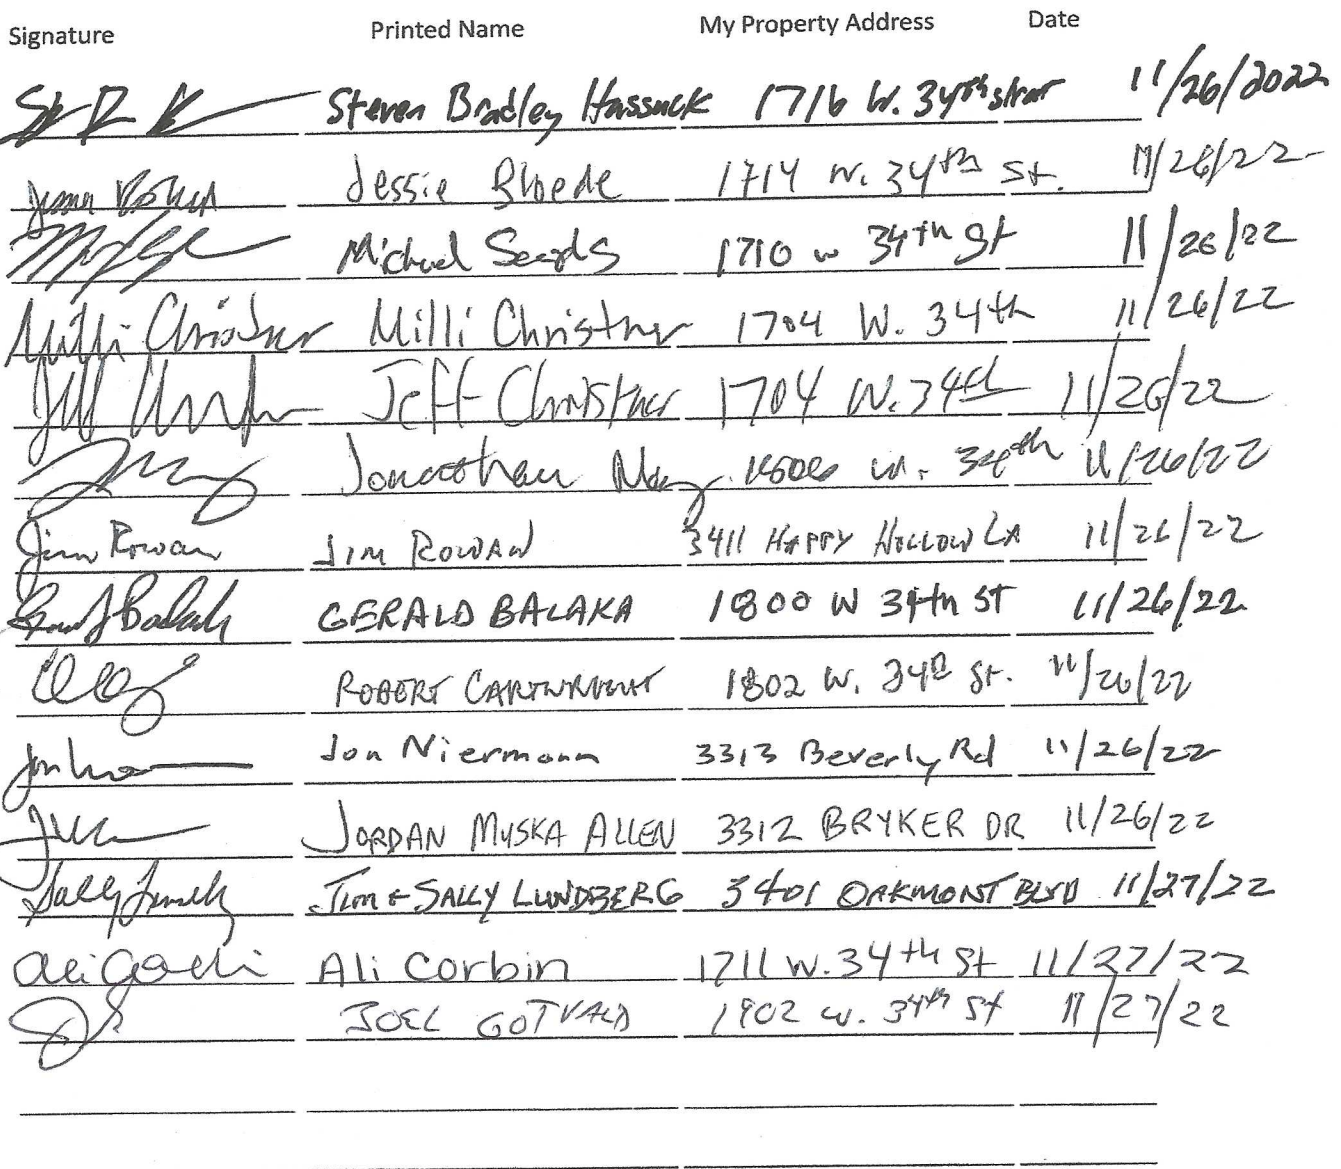 Signature Printed Name My Property Address Date
Steven Bradley Hassuck 1716 W. 34th street 11/26/2022
Jessie Bloede 1714 W. 34th St. 11/26/22
Michael Seards 1710 W 34th St 11/26/22
Milli Christner Milli Christner 1704 W. 34th 11/26/22
Jeff Christner 1704 W. 34th 11/26/22
Jonathan W. 34th 11/26/22
Jim Rowan JIM ROWAN 3411 HAPPY HOLLOW LN 11/26/22
GERALD BALAKA 1800 W 34th ST 11/26/22
ROBERT CARTWRIGHT 1802 W. 34th St. 11/26/22
Jon Niermann 3313 Beverly Rd 11/26/22
JORDAN MUSKA ALLEN 3312 BRYKER DR 11/26/22
Sally JIM & SALLY LUNDBERG 3401 OAKMONT BLVD 11/27/22
Ali Corbin 1711 W. 34th St 11/27/22
JOEL GOTVALD 1902 W. 34th St 11/27/22